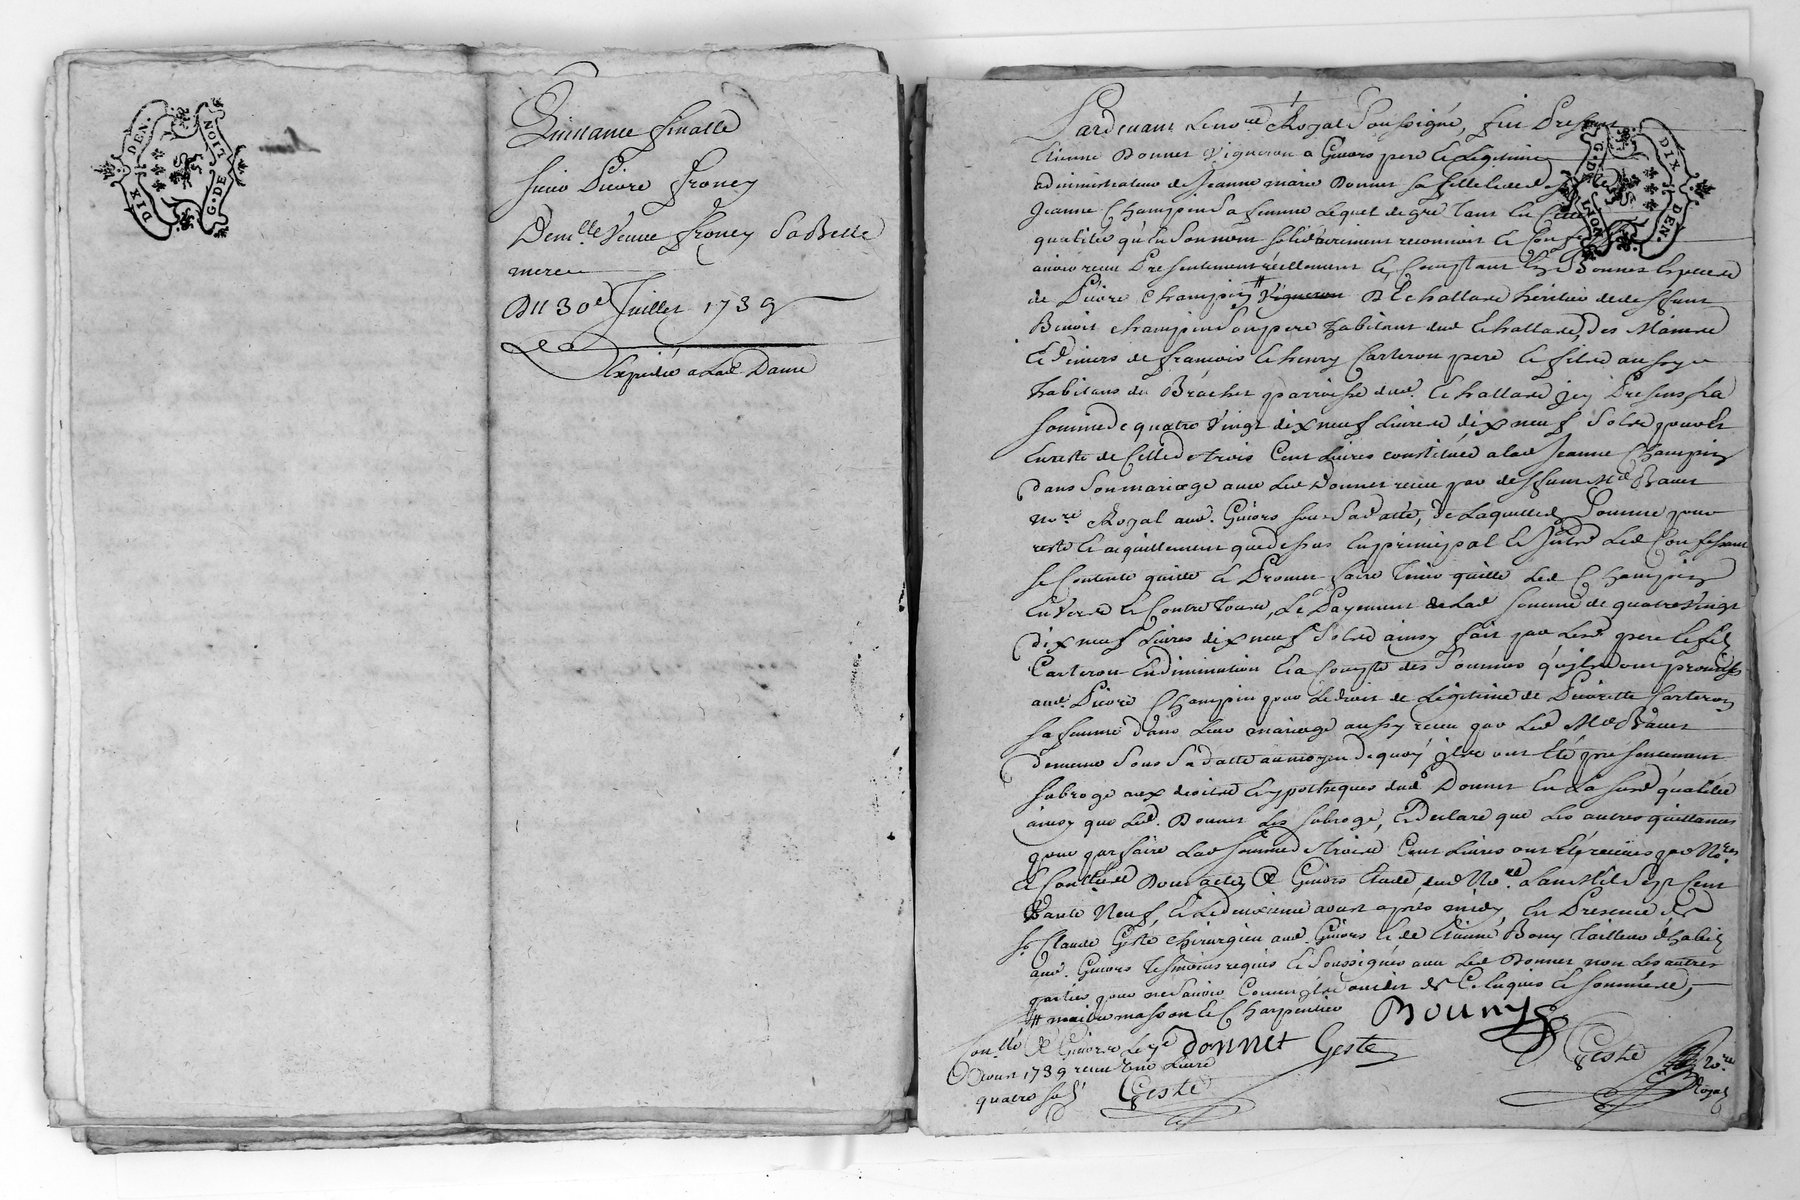 DIX DEN.
G. DE LION
Quittance finalle
sieur Pierre froney
Dem.lle Veuve froney Sa Belle
mere
Du 30e Juillet 1739
Expedié a lad Dame
Pardevant le no.re Royal Soussigné, fut Present
Etienne Donnet Vigneron a Givors pere et Legitime
administrateur de Jeanne marie Donnet sa fille et de
Jeanne Champin sa femme lequel de gré tant en cette
qualité qu'en son nom solidairement reconnoit et confesse
avoir receu Presentement réellement et Comptant En Bonnes especes
de Pierre Champin # Vigneron D'Echallas heritier de deffunt
Benoit champin son pere habitant dud Echallas, Des Mains
et deniers de francois et henry Carteron pere et fils
habitans du Brachet parroisse dud. Echallas jcy Presens, La
somme de quatre Vingt dix neuf livres dix neuf sols pour
En reste de Celle de trois Cent livres constituée a lad Jeanne Champin
dans son mariage avec led Donnet receu par deffunt Me
No.re Royal aud. Givors sous sa datte, de Laquelle Somme pour
reste et acquittement que dessus En principal et led Confessant
se Contente quitte et Promet faire tenir quitte led Champin
Envers et Contre tous, Le Payement de lad somme de quatre Vingt
dix neuf livres dix neuf sols ainsy fait par lesd pere et fils
Carteron En diminution et a Compte des Sommes qu'ils ont promises
aud. Pierre Champin pour le droit de Legitime de Pierrette Carteron
sa femme dans leur mariage aussy receu par led Me
demeure sous sa datte au moyen de quoy ils ont été presentement
subrogé aux droits et hypotheques dud Donnet En la susd qualité
ainsy que led. Donnet les subroge, et declare que les autres quittances
pour parfaire lad somme de trois Cent livres ont été receües par No.res
Dont acte, Givors Etude dud No.re L'an Mil Sept Cent
trante Neuf, et le deuxieme aoust après midy, En Presence de
Sr Claude Geste Chirurgien aud. Givors et de Etienne Bouny tailleur d'habits
aud. Givors tesmoins requis et Soussignés avec led Donnet non les autres
parties pour ne savoir Comme ils ont dit de Ce Enquis et sommées,
# maitre masson et Charpentier
Bouny
Con.llé A Givors le 7e donnet Geste
Aoust 1739 receu une Livre Geste No.re
quatre sols Geste Royal
G. DE LION
DIX DEN.